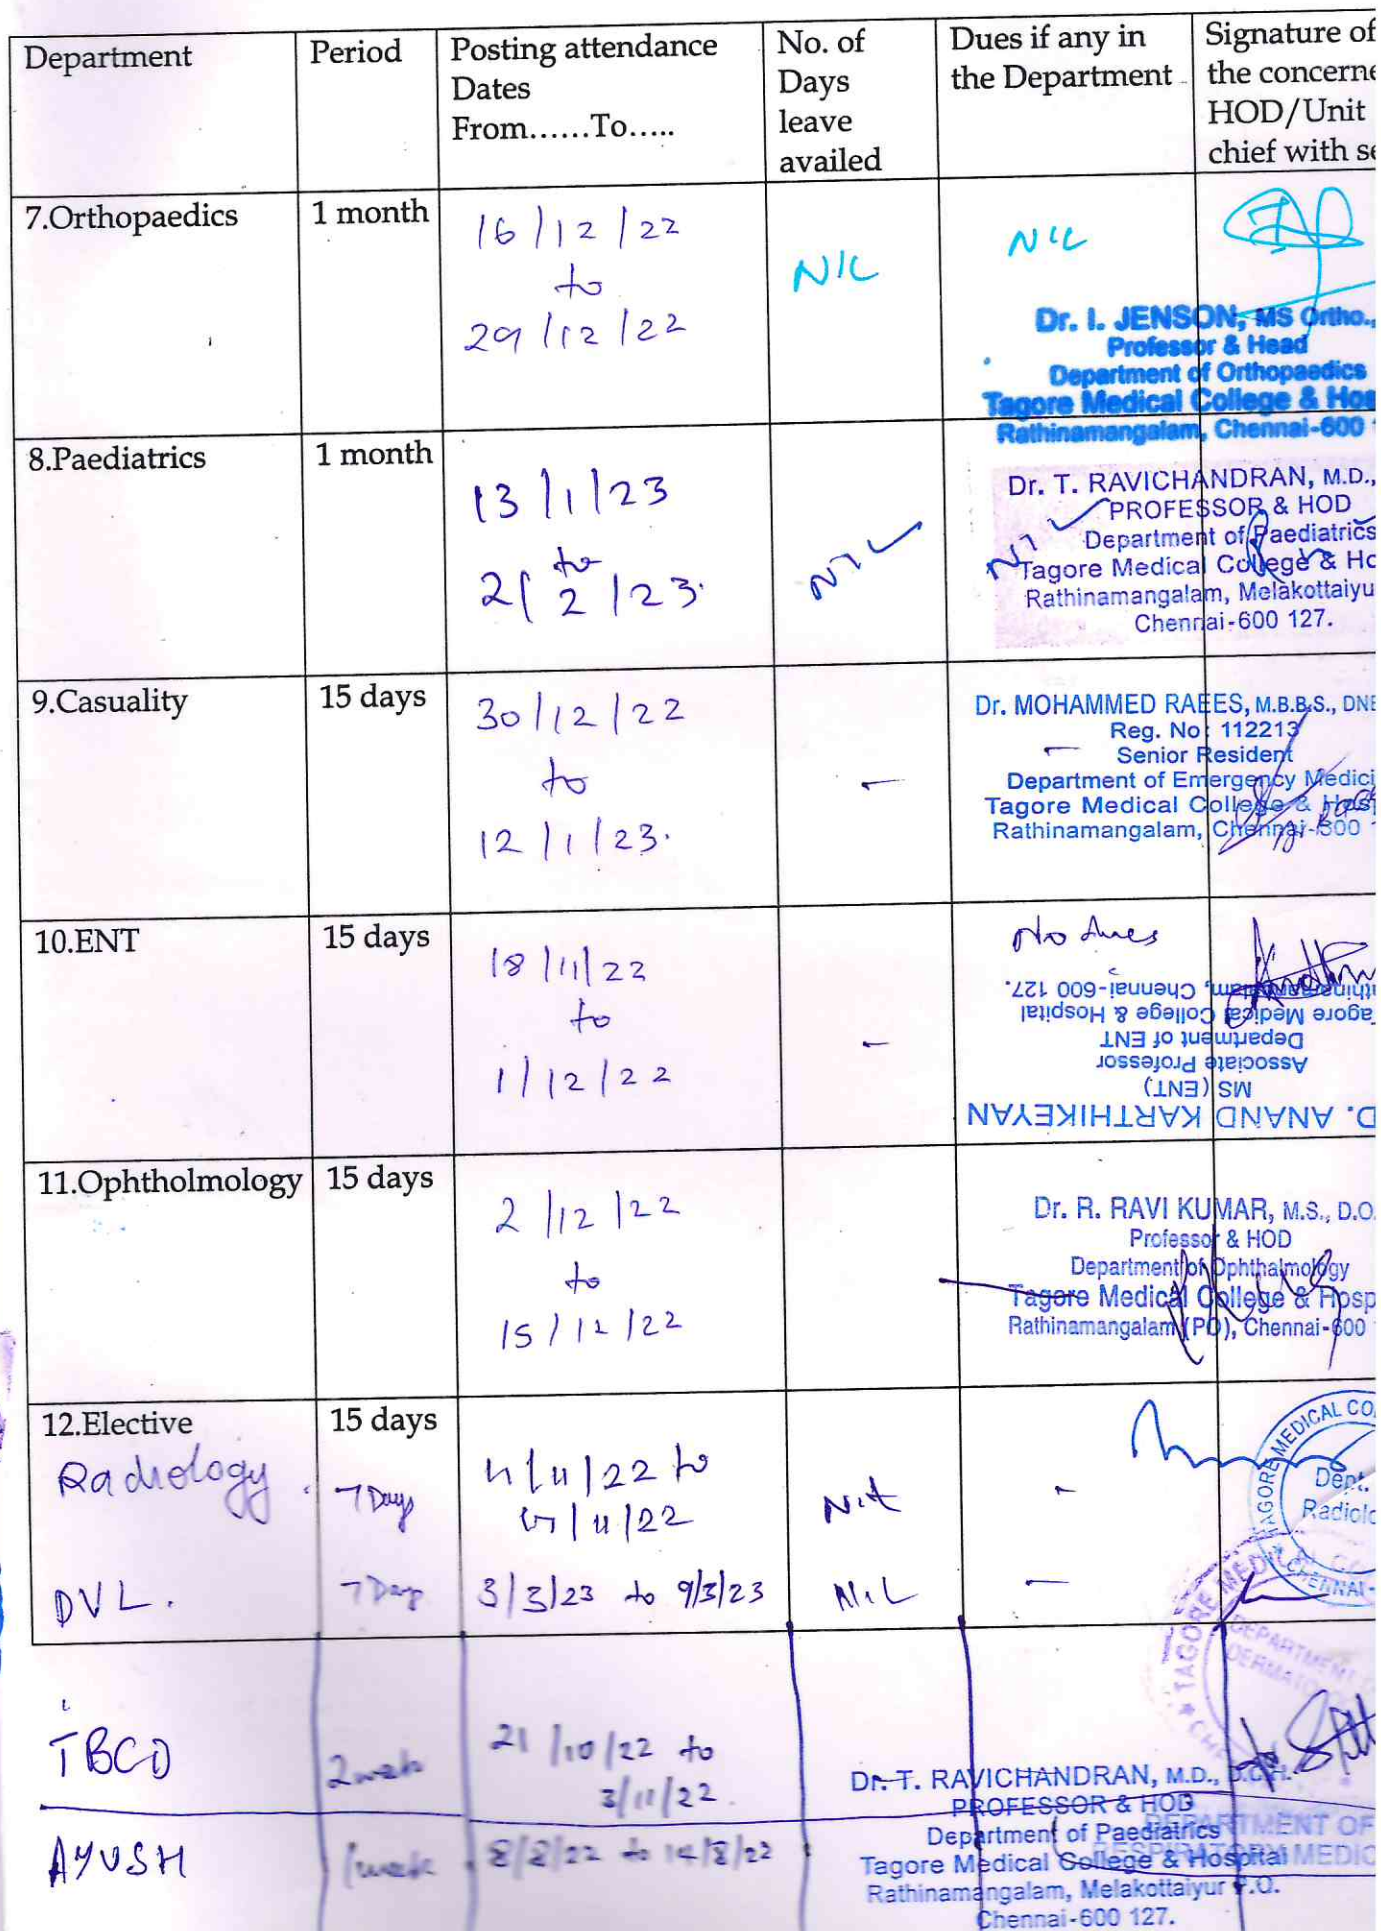 Department
Period
Posting attendance
Dates
From......To.....
No. of
Days
leave
availed
Dues if any in
the Department
Signature of
the concerne
HOD/Unit
chief with se
7.Orthopaedics
1 month
16/12/22
to
29/12/22
NIL
NIL
Dr. I. JENSON, MS Ortho.,
Professor & Head
Department of Orthopaedics
Tagore Medical College & Hos
Rathinamangalam, Chennai-600 1
8.Paediatrics
1 month
13/1/23
to
2/2/23.
NIL
NIL
Dr. T. RAVICHANDRAN, M.D.,
PROFESSOR & HOD
Department of Paediatrics
Tagore Medical College & Ho
Rathinamangalam, Melakottaiyu
Chennai-600 127.
9.Casuality
15 days
30/12/22
to
12/1/23.
-
-
Dr. MOHAMMED RAEES, M.B.B.S., DNB
Reg. No: 112213
Senior Resident
Department of Emergency Medici
Tagore Medical College & Hosp
Rathinamangalam, Chennai-600
10.ENT
15 days
18/11/22
to
1/12/22
-
No dues
D. ANAND KARTHIKEYAN
MS (ENT)
Associate Professor
Department of ENT
agore Medical College & Hospital
Chennai-600 127.
11.Ophtholmology
15 days
2/12/22
to
15/12/22
Dr. R. RAVI KUMAR, M.S., D.O.
Professor & HOD
Department of Ophthalmology
Tagore Medical College & Hosp
Rathinamangalam (PO), Chennai-600
12.Elective
15 days
Radiology.
7 Days
/11/22 to
/11/22
Nil
-
TAGORE MEDICAL CO
Dept.
Radiolo
CHENNAI-
DVL.
7 Days
3/3/23 to 9/3/23
NIL
-
TAGORE MEDICAL CO
DEPARTMENT O
DERMATOLO
TBCD
2 week
21/10/22 to
3/11/22.
Dr. T. RAVICHANDRAN, M.D., D.C.H.
PROFESSOR & HOD
Department of Paediatrics
Tagore Medical College & Hospital
Rathinamangalam, Melakottaiyur P.O.
Chennai-600 127.
DEPARTMENT OF
RESPIRATORY MEDIC
AYUSH
1 week
8/8/22 to 14/8/22